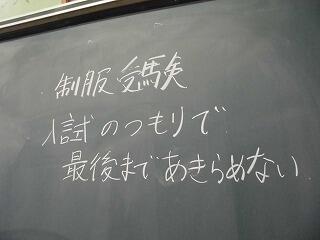 制服受験
入試のつもりで
最後まであきらめない